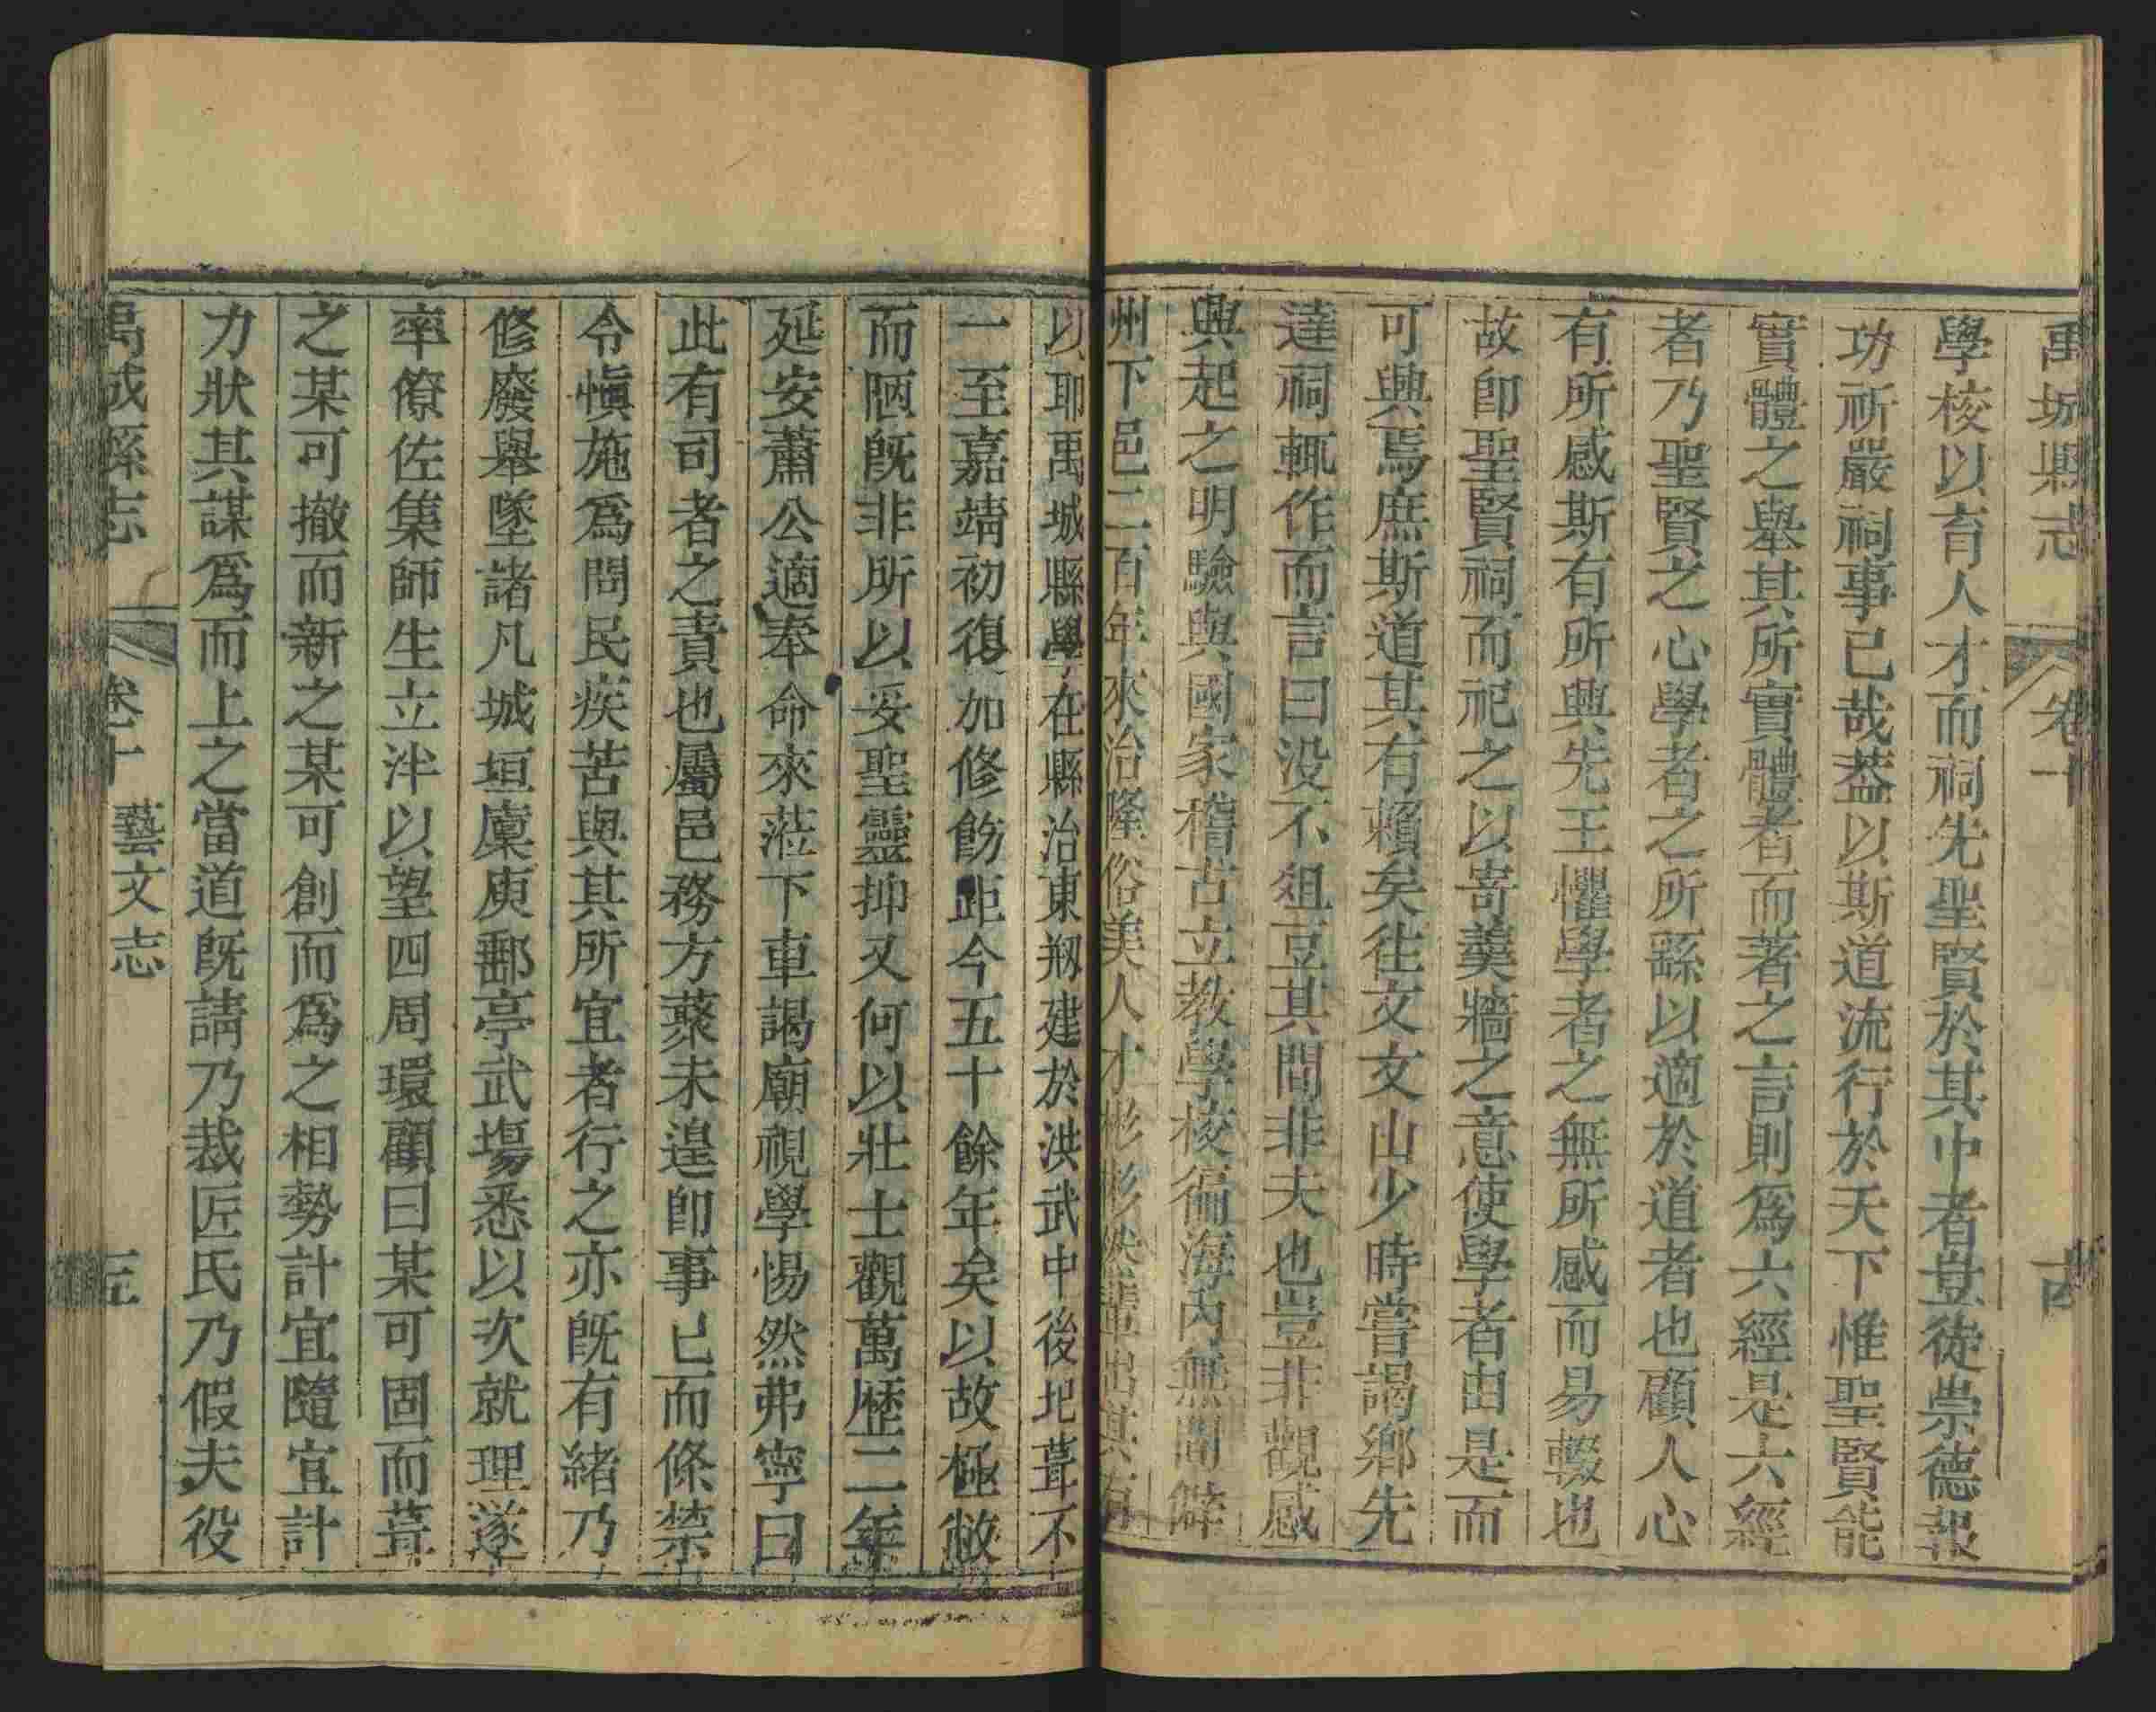 禹城縣志
卷十
古
學校以育人才而祠先聖賢於其中者豈徒崇德報
功祈嚴祠事已哉葢以斯道流行於天下惟聖賢能
實體之舉其所實體者而著之言則爲六經是六經
者乃聖賢之心學者之所繇以適於道者也顧人心
有所感斯有所興先王懼學者之無所感而易輟也
故卽聖賢祠而祀之以寄羹牆之意使學者由是而
可興焉庶斯道其有賴矣徃文文山少時嘗謁鄉先
達祠輒作而言曰没不俎豆其間非夫也豈非觀感
興起之明驗與國家稽古立教學校徧海内無間僻
州下邑二百年來治隆俗美人才彬彬然輩出其有
以耶禹城縣學在縣治東剏建於洪武中後圮葺不
一至嘉靖初復加修飭距今五十餘年矣以故極敝
而陋旣非所以妥聖靈抑又何以壯士觀萬歷二年
延安蕭公適奉命來蒞下車謁廟視學惕然弗寧曰
此有司者之責也屬邑務方蕠未遑卽事已而條禁
令愼施爲問民疾苦與其所宜者行之亦旣有緒乃
修廢舉墜諸凡城垣廩庾郵亭武塲悉以次就理遂
率僚佐集師生立泮以望四周環顧曰某可固而葺
之某可撤而新之某可創而爲之相勢計宜隨宜計
力狀其謀爲而上之當道旣請乃裁匠氏乃假夫役
禹城縣志
卷十
藝文志